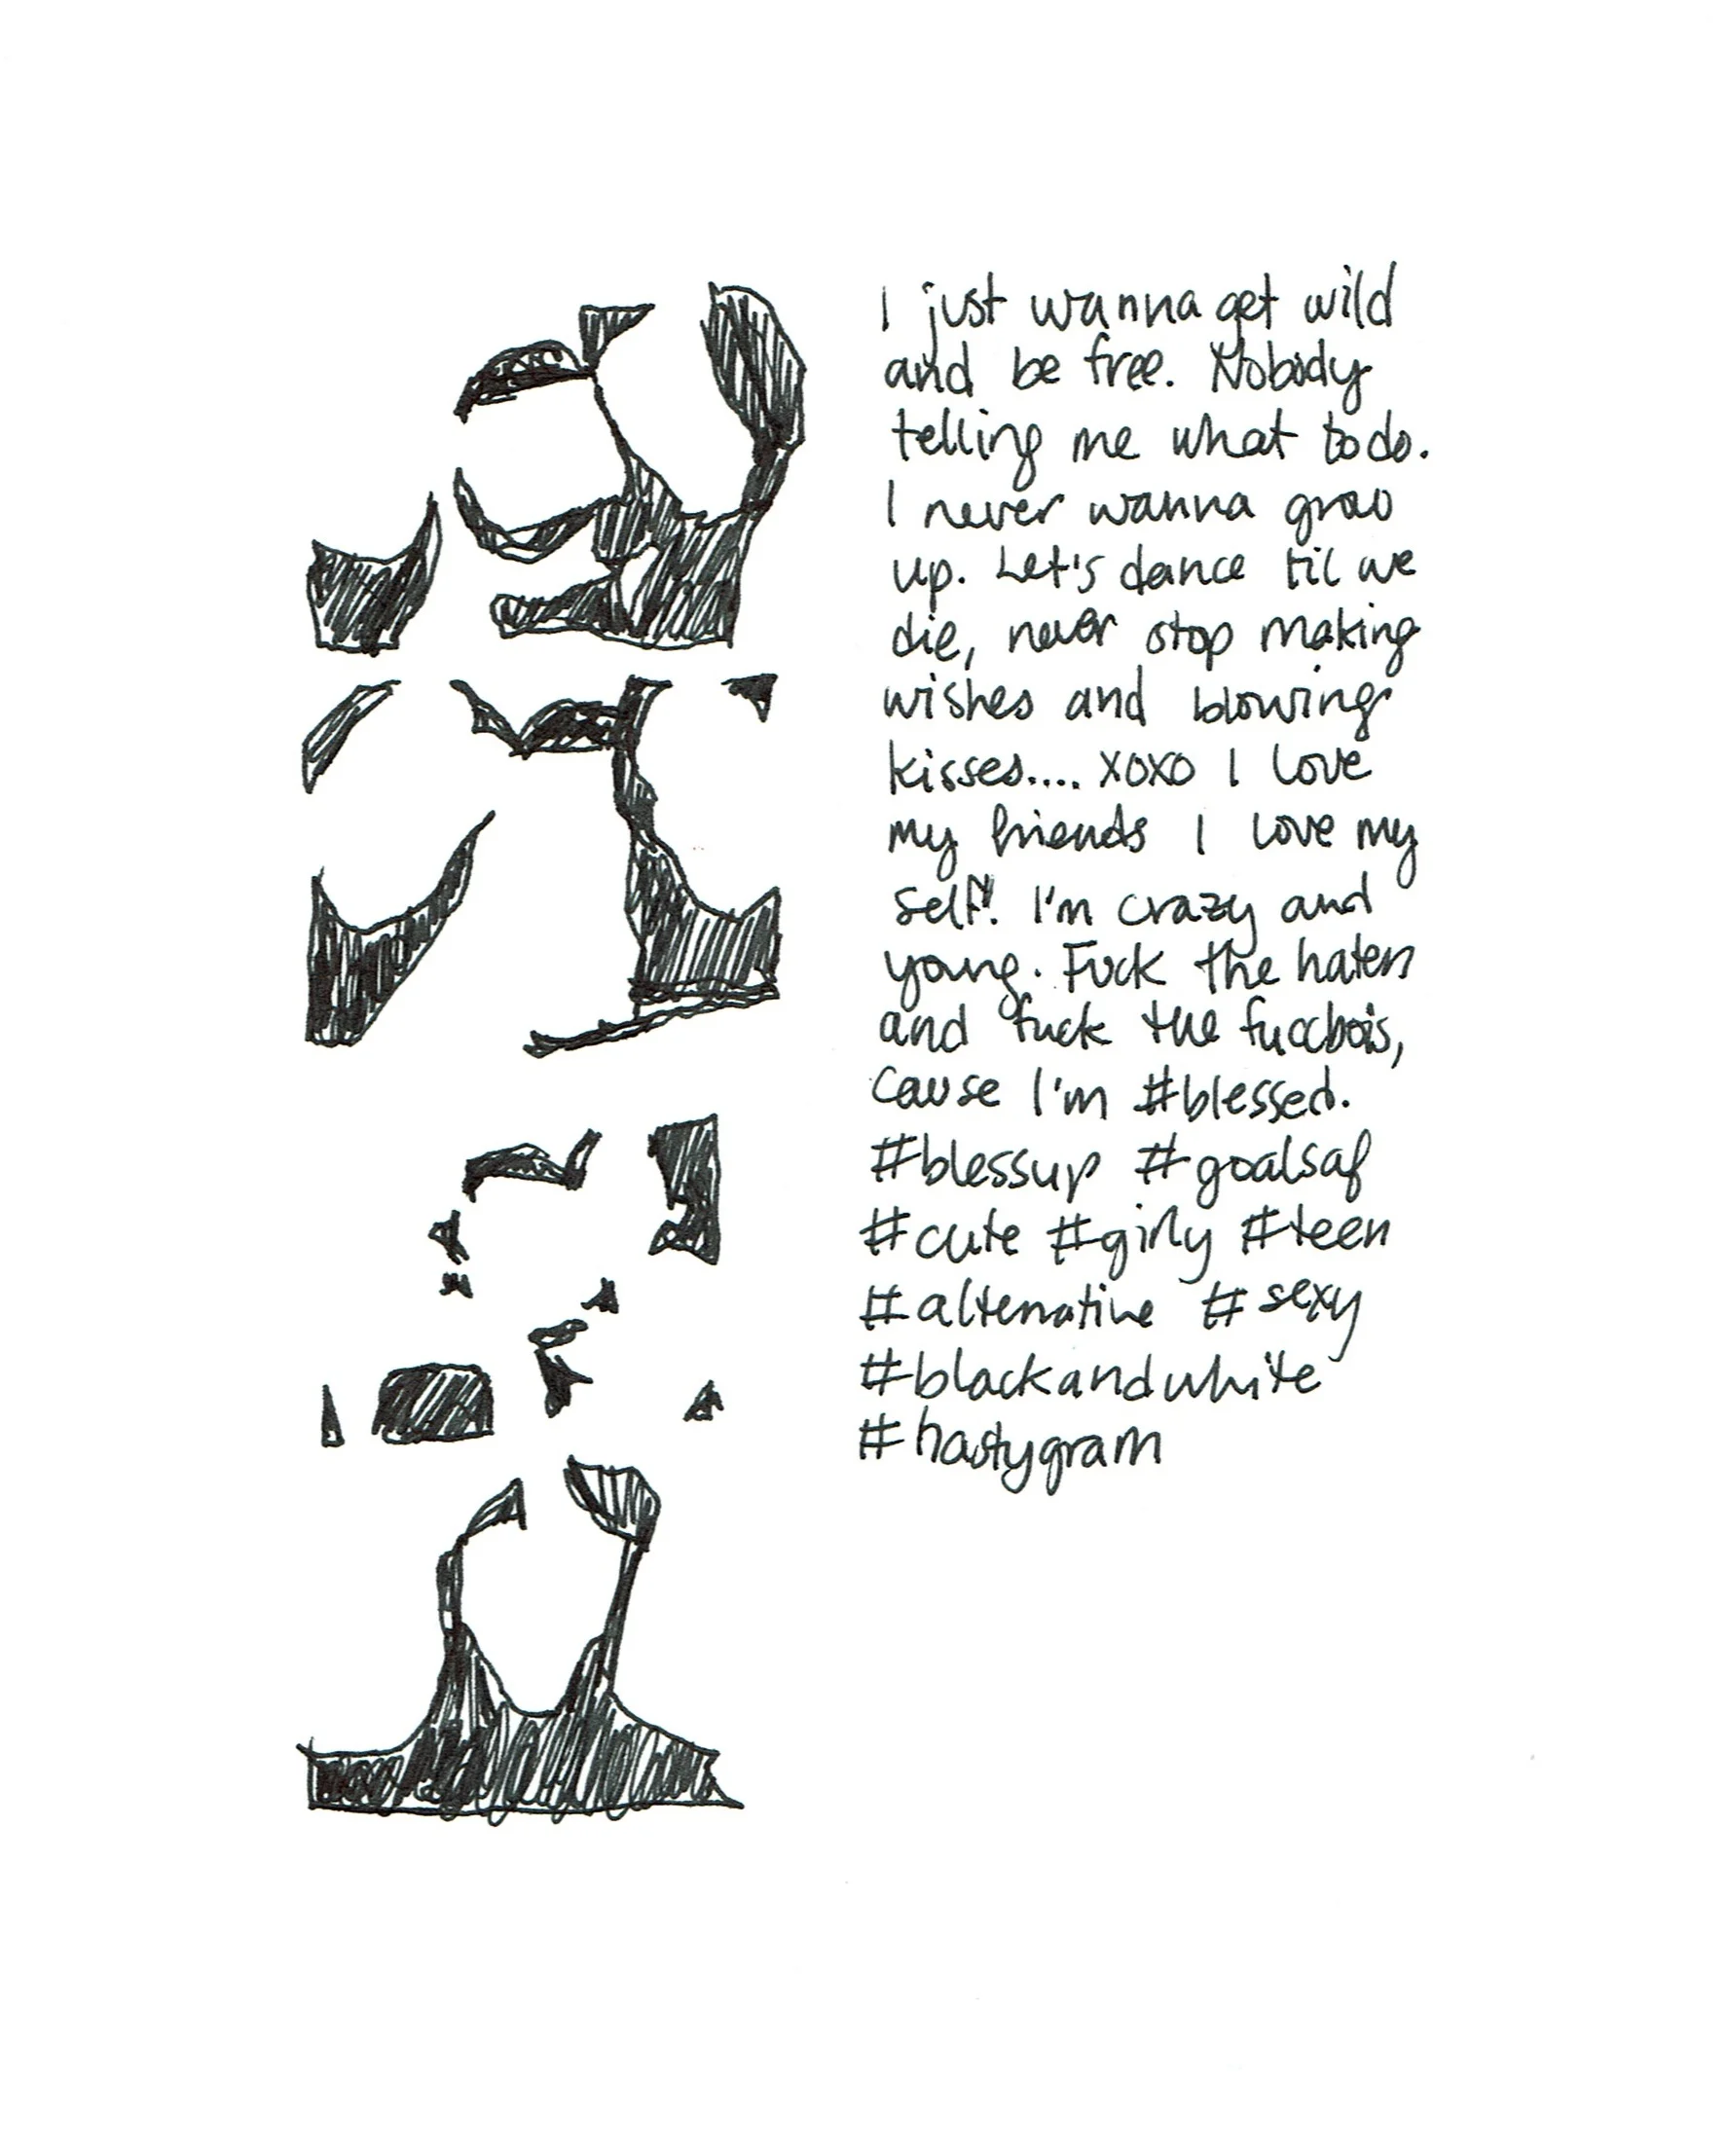 I just wanna get wild
and be free. Nobody
telling me what to do.
I never wanna grow
up. Let's dance til we
die, never stop making
wishes and blowing
kisses.... xoxo I love
my friends I love my
self!! I'm crazy and
young. Fuck the haters
and fuck the fuccbois,
cause I'm #blessed.
#blessup #goalsaf
#cute #girly #teen
#alternative #sexy
#blackandwhite
#hastygram